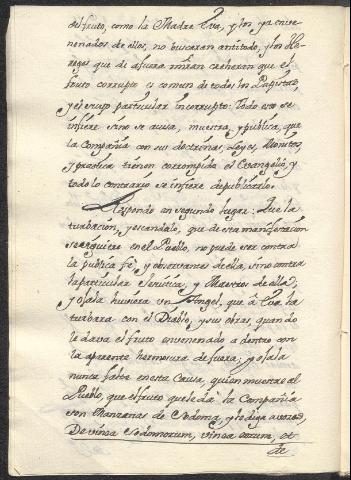 del fruto, como la Madre Eva, y los ya enve-
nenados de ellos, no buscaran antidoto, y los He-
reges que de afuera miran creheran que el
fruto corrupto es comun de todos los Papistas,
y el escup particular Incorrupto: Todo esto se
infiere sino se avisa, muestra, y publica, que
la Compañia con sus doctrinas, Leyes, Monitos,
y practica tienen corrompido el Evangelio, y
todo lo contrario se infiere de publicarlo.
Respondo en segundo lugar: Que la
turbacion, y escandalo, que de esta manifestacion
se erguiere en el Pueblo, no puede ser contra
la publica fe, y observantes de ella, sino contra
la particular Jesuitica, y Maestros de ella,
y ojala huviera un Angel, que à Eva ha
turbara con el Diablo, y sus obras, quando
le dava el fruto envenenado a dentro con
la aparente hermosura de fuera; y ojala
nunca falte en esta Causa, quien muestre al
Pueblo, que el fruto que le dà la Compañia
son Manzanas de Sodoma, y lo diga a vozes,
De vinea Sodomorum, vinea eorum, et
de